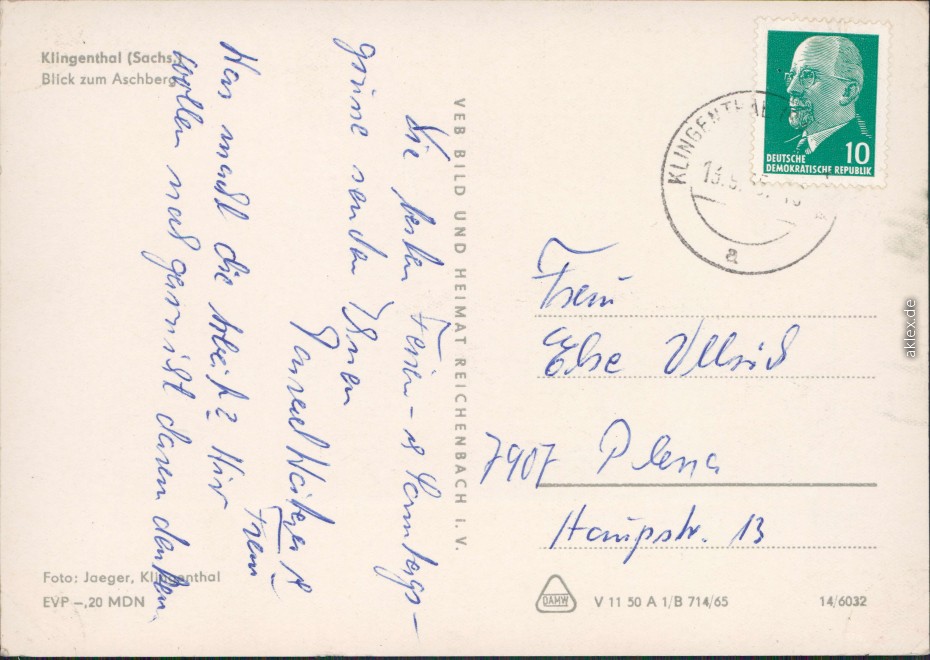 Klingenthal (Sachs.)
Blick zum Aschberg
Die besten Ferien- u. Sonntags-
grüsse senden Ihnen
u.
Frau
Was macht die Arbeit? Wir
wollen noch garnicht daran denken.
Foto: Jaeger, Klingenthal
EVP -,20 MDN
VEB BILD UND HEIMAT REICHENBACH I. V.
KLINGENTHAL
a
10
DEUTSCHE
DEMOKRATISCHE REPUBLIK
Frau
Else Ullrich
7907 Plessa
Haupstr. 13
DAMW
V 11 50 A 1/B 714/65
14/6032
aklex.de